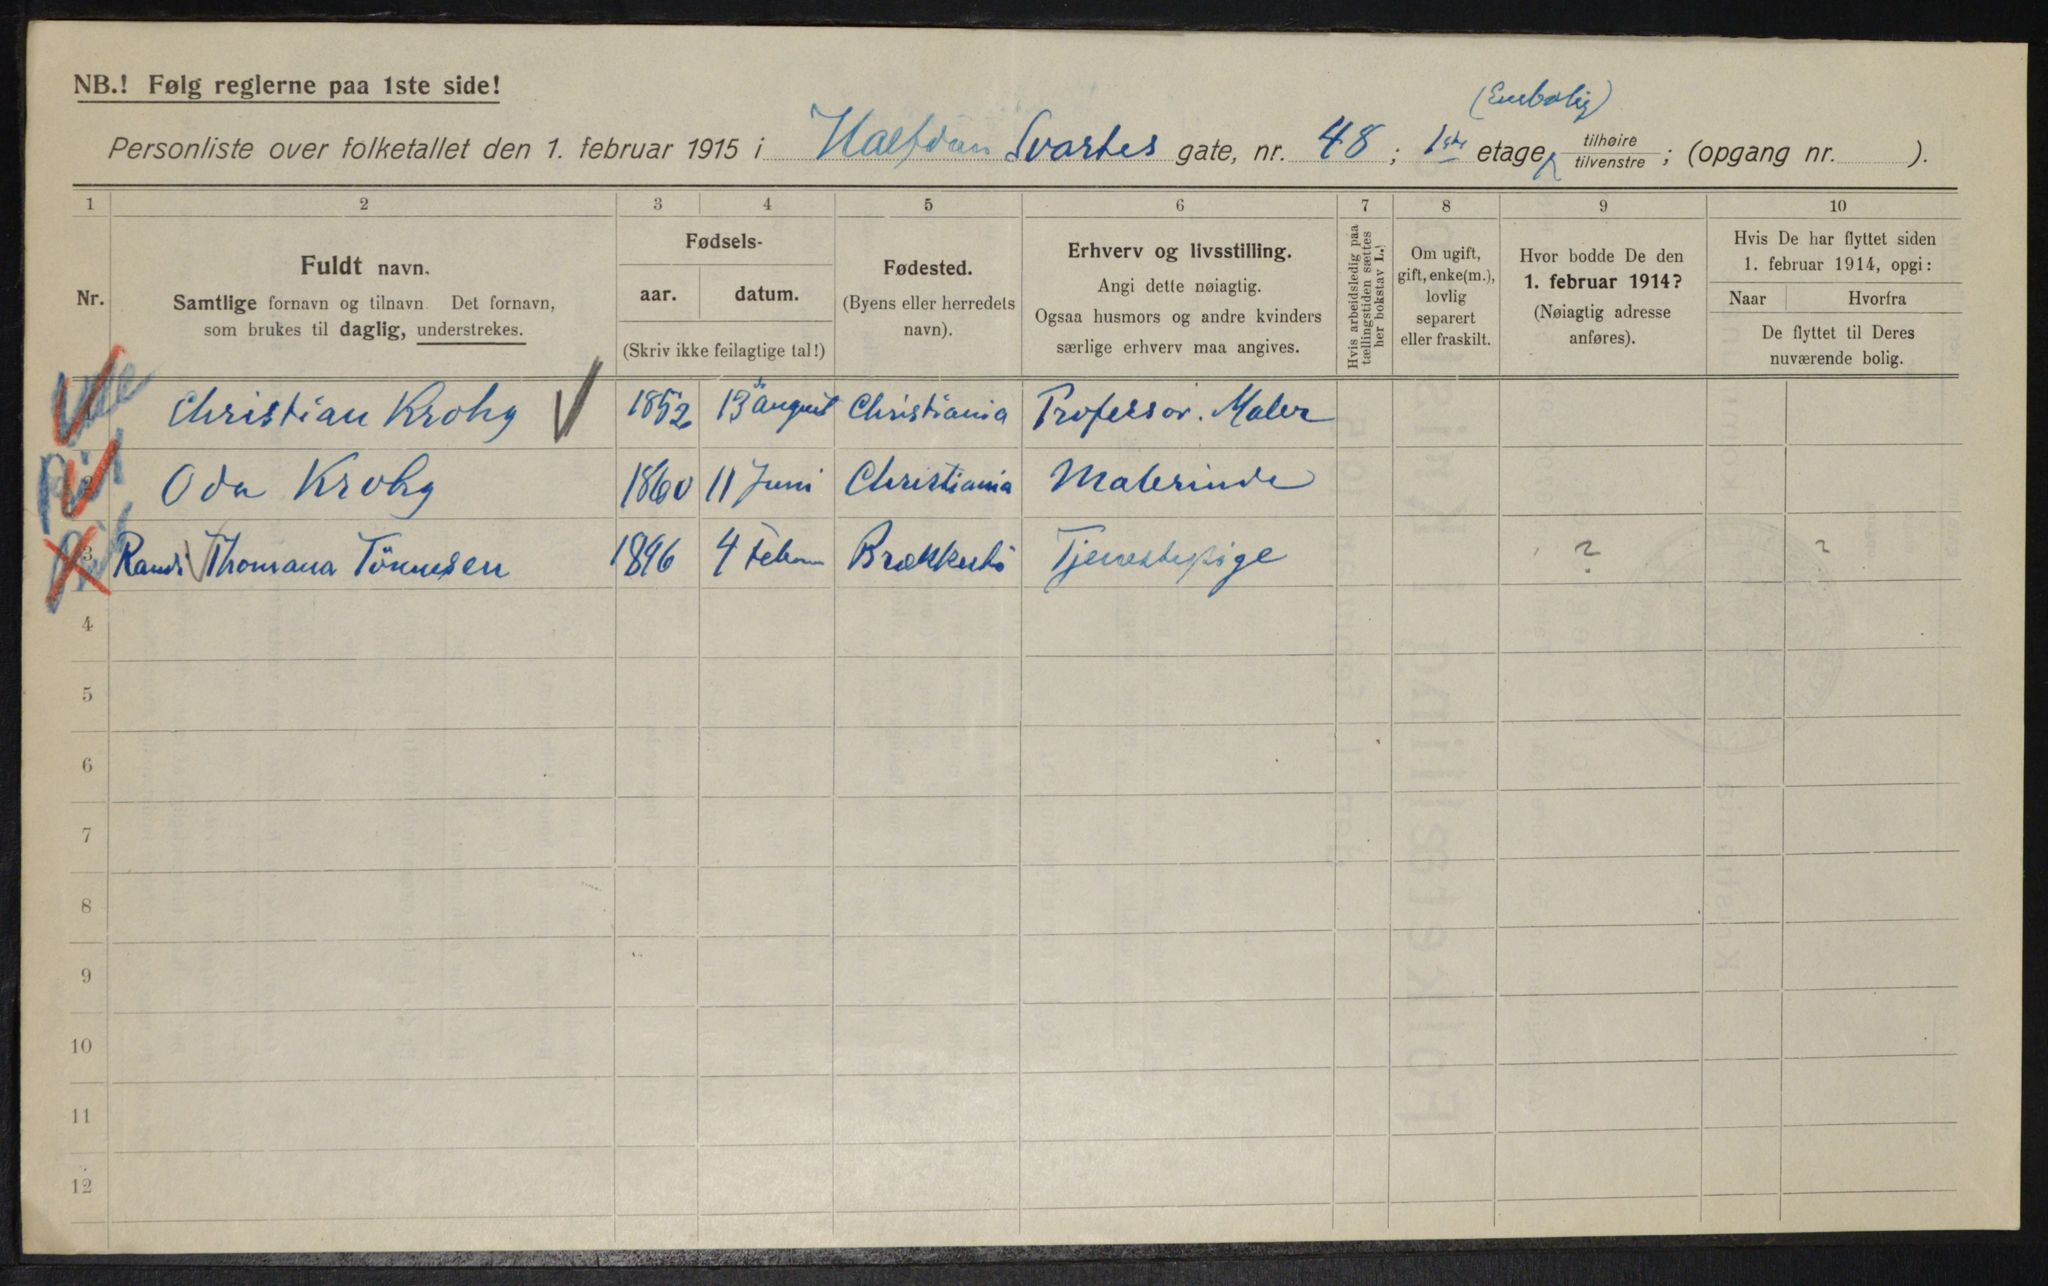 NB.! Følg reglerne paa 1ste side!
(Enebolig)
Personliste over folketallet den 1. februar 1915 i Halfdan Svartes gate, nr. 48; 1ste etage, tilhøire/tilvenstre; (opgang nr. ).
1 2 3 4 5 6 7 8 9 10
Nr.
Fuldt navn.
Samtlige fornavn og tilnavn. Det fornavn,
som brukes til daglig, understrekes.
Fødsels-
aar. datum.
(Skriv ikke feilagtige tal!)
Fødested.
(Byens eller herredets
navn).
Erhverv og livsstilling.
Angi dette nøiagtig.
Ogsaa husmors og andre kvinders
særlige erhverv maa angives.
Hvis arbeidsledig paa
tællingstiden sættes
her bokstav L.)
Om ugift,
gift, enke(m.),
lovlig
separert
eller fraskilt.
Hvor bodde De den
1. februar 1914?
(Nøiagtig adresse
anføres).
Hvis De har flyttet siden
1. februar 1914, opgi:
Naar Hvorfra
De flyttet til Deres
nuværende bolig.
1 Christian Krohg 1852 13 august Christiania Professor. Maler
2 Oda Krohg 1860 11 Juni Christiania Malerinde
3 Randi Thomana Tönnesen 1896 4 Febr Brækkestö Tjenestepige ? ?
4
5
6
7
8
9
10
11
12